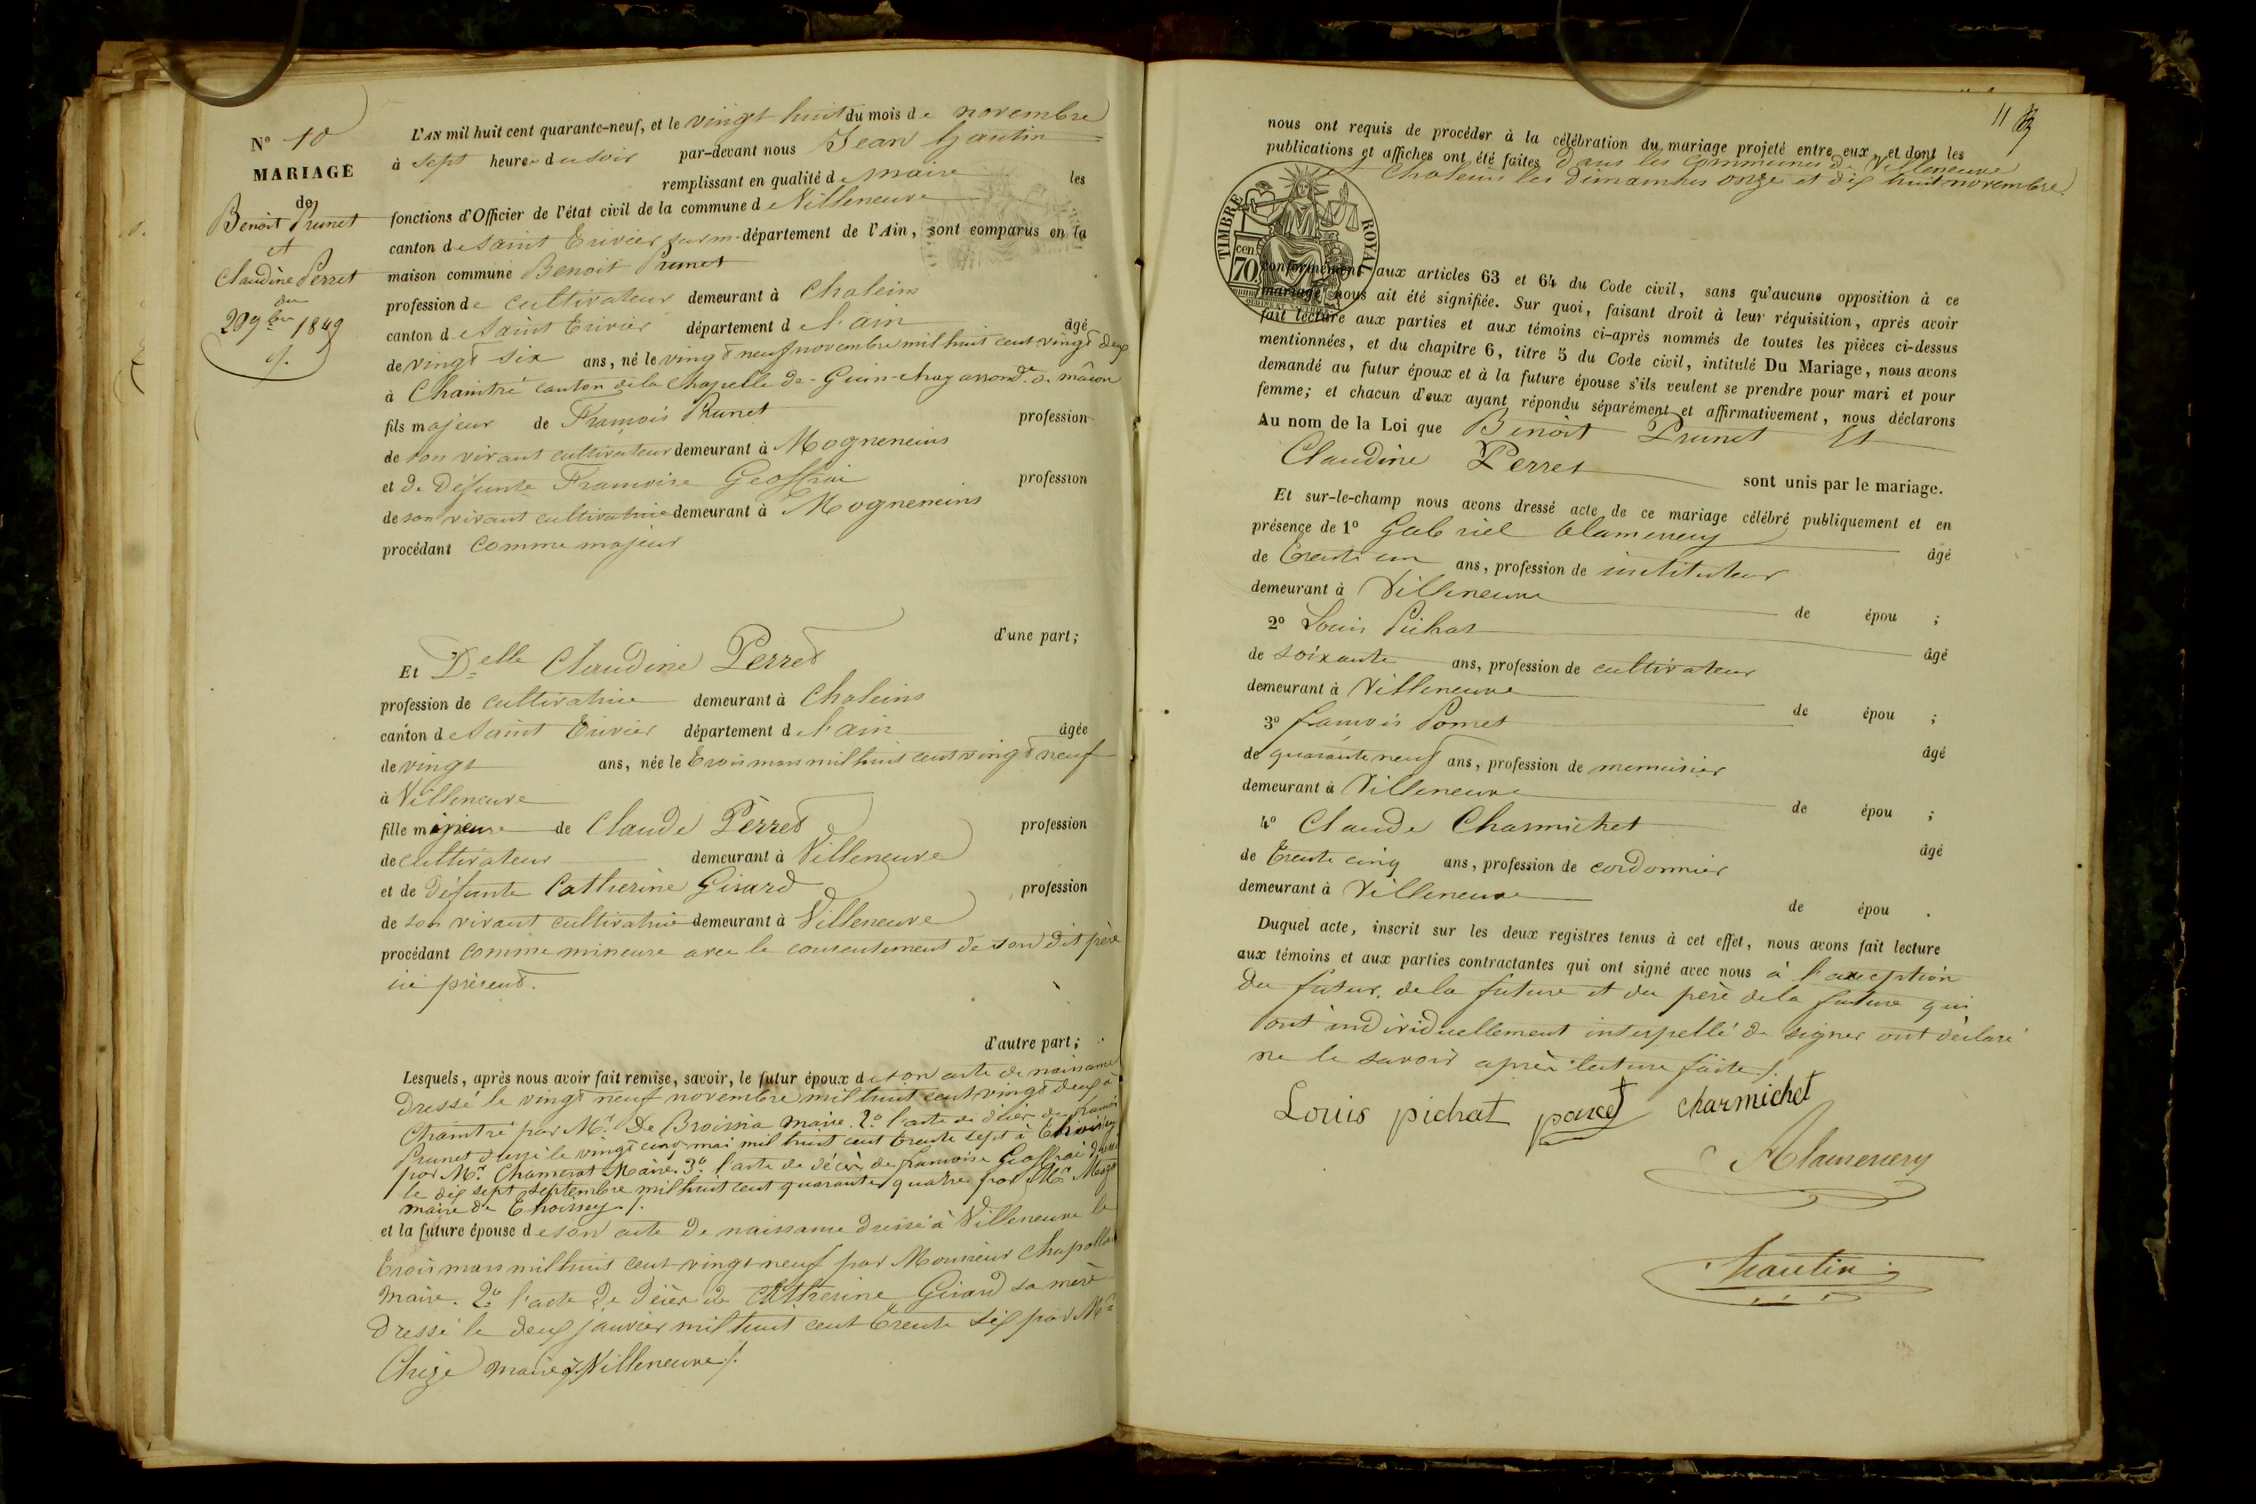 N° 10
MARIAGE
de
Benoit Prunet
et
Claudine Perret
du
29 9bre 1849
L'AN mil huit cent quarante-neuf, et le vingt huit du mois de novembre
à sept heures du soir par-devant nous Jean Gautin
remplissant en qualité de maire les
fonctions d'Officier de l'état civil de la commune de Villeneuve
canton de Saint Trivier sur m. département de l'Ain, sont comparus en la
maison commune Benoit Prunet
profession de cultivateur demeurant à Chaleins
canton de Saint Trivier département de l'ain âgé
de vingt six ans, né le vingt neuf novembre mil huit cent vingt deux
à Chaintré canton de la Chapelle de Guinchay arrondt de mâcon
fils majeur de François Prunet profession
de son vivant cultivateur demeurant à Mogneneins
et de défunte Francoise Geoffrai profession
de son vivant cultivatrice demeurant à Mogneneins
procédant comme majeur
d'une part;
Et Delle Claudine Perret
profession de cultivatrice demeurant à Chaleins
canton de Saint Trivier département de l'ain âgée
de vingt ans, née le trois mars mil huit cent vingt neuf
à Villeneuve
fille mineure de Claude Perret profession
de cultivateur demeurant à Villeneuve
et de défunte Catherine Girard profession
de son vivant cultivatrice demeurant à Villeneuve
procédant comme mineure avec le consentement de son dit père
ici présent.
d'autre part;
Lesquels, après nous avoir fait remise, savoir, le futur époux de son acte de naissance
dressé le vingt neuf novembre mil huit cent vingt deux à
Chaintré par Mr. De Broissia maire. 2° l'acte de décès de francois
Prunet dressé le vingt cinq mai mil huit cent trente sept à Thoissey
par Mr. Chamerat Maire. 3° l'acte de décès de francoise Geoffrai dressé
le dix sept septembre mil huit cent quarante quatre par Mr
maire de Thoissey /.
et la future épouse de son acte de naissance dressé à Villeneuve le
trois mars mil huit cent vingt neuf par Monsieur Chapollard
Maire. 2° l'acte de décès de Catherine Girard sa mère
dressé le deux janvier mil huit cent trente six par Mr
Chize maire à Villeneuve /.
11
nous ont requis de procéder à la célébration du mariage projeté entre eux, et dont les
publications et affiches ont été faites dans les communes de Villeneuve
et Chaleins les dimanches onze et dix huit novembre
TIMBRE ROYAL
70 cen
conformément aux articles 63 et 64 du Code civil, sans qu'aucune opposition à ce
mariage nous ait été signifiée. Sur quoi, faisant droit à leur réquisition, après avoir
fait lecture aux parties et aux témoins ci-après nommés de toutes les pièces ci-dessus
mentionnées, et du chapitre 6, titre 5 du Code civil, intitulé Du Mariage, nous avons
demandé au futur époux et à la future épouse s'ils veulent se prendre pour mari et pour
femme; et chacun d'eux ayant répondu séparément et affirmativement, nous déclarons
Au nom de la Loi que Benoit Prunet Et
Claudine Perret
sont unis par le mariage.
Et sur-le-champ nous avons dressé acte de ce mariage célébré publiquement et en
présence de 1° Gabriel Alamercery âgé
de trente un ans, profession de instituteur
demeurant à Villeneuve de épou ;
2° Louis Pichat âgé
de soixante ans, profession de cultivateur
demeurant à Villeneuve de épou ;
3° francois Poncet âgé
de quarante neuf ans, profession de menuisier
demeurant à Villeneuve de épou ;
4° Claude Charmichet âgé
de trente cinq ans, profession de cordonnier
demeurant à Villeneuve de épou .
Duquel acte, inscrit sur les deux registres tenus à cet effet, nous avons fait lecture
aux témoins et aux parties contractantes qui ont signé avec nous à l'exception
du futur, de la future et du père de la future qui
ont individuellement interpellé de signer ont déclaré
ne le savoir après lecture faite /.
Louis pichat poncet charmichet
Alamercery
Gautin